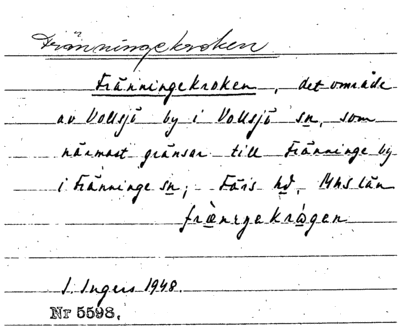 Fränningekroken
Fränningekroken, det område
av Vollsjö by i Vollsjö sn, som
närmast gränsar till Fränninge by
i Fränninge sn; Färs hd, Mhs län
I. Ingers 1948.
Nr 5598.